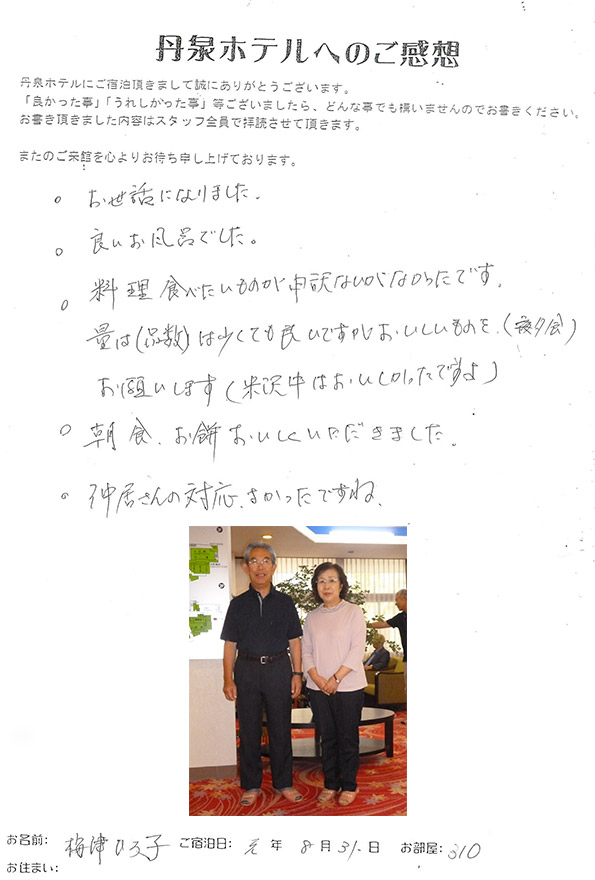 丹泉ホテルへのご感想
丹泉ホテルにご宿泊頂きまして誠にありがとうございます。
「良かった事」「うれしかった事」等ございましたら、どんな事でも構いませんのでお書きください。
お書き頂きました内容はスタッフ全員で拝読させて頂きます。
またのご来館を心よりお待ち申し上げております。
○ お世話になりました.
○ 良いお風呂でした。
○ 料理食べたいものが申訳ないがなかったです.
量は(品数)は少くても良いですがおいしいものを.(夕食)
お願いします(米沢牛はおいしかったですよ)
○ 朝食.お餅おいしくいただきました.
○ 仲居さんの対応.よかったですね.
お名前: 梅津ひろ子 ご宿泊日: 元年 8月 31日 お部屋: 310
お住まい: